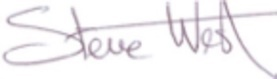 Steve West